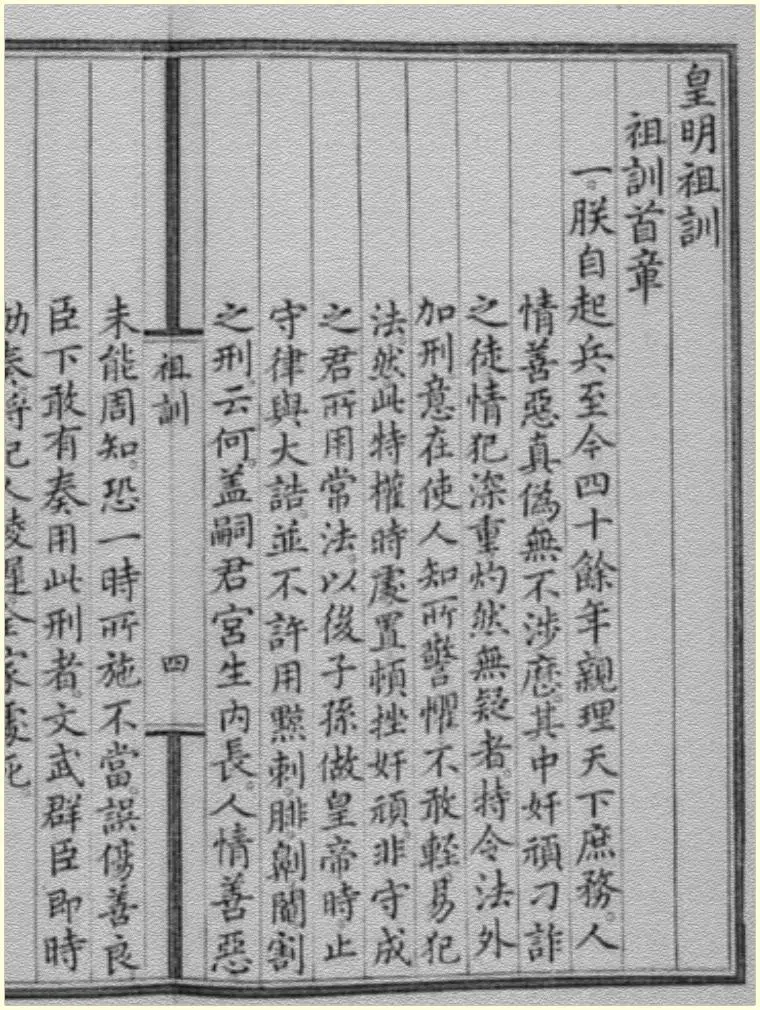 皇明祖訓
祖訓首章
一。朕自起兵至今四十餘年。親理天下庶務。人
情善惡真偽無不涉歷。其中奸頑刁詐
之徒情犯深重灼然無疑者。特令法外
加刑意在使人知所警懼不敢輕易犯
法。然此特權時處置頓挫奸頑。非守成
之君所用常法。以後子孫做皇帝時。止
守律與大誥並不許用黥刺。腓。劓閹割
之刑。云何。盖嗣君宮生內長。人情善惡
祖訓
四
未能周知。恐一時所施不當。誤傷善良
臣下敢有奏用此刑者。文武群臣即時
劾奏將犯人凌遲全家處死。